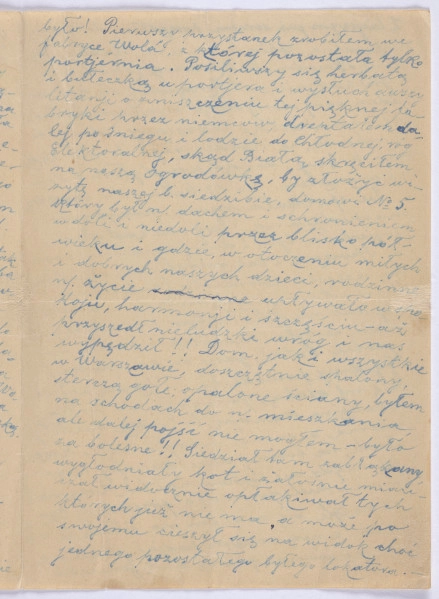 było! Pierwszy przystanek zrobiłem we
fabryce "Wola", z której pozostała tylko
portjernia. Posiliwszy się herbatą
i bułeczką u portjera i wysłuchawszy
litanji o zniszczeniu tej pięknej fa-
bryki przez niemców, dreptałem da-
lej po śniegu i lodzie do Chłodnej, po
Elektoralnej, skąd Białą, skręciłem
na naszą Ogrodówkę, by złożyć wi-
zytę naszej b. siedzibie, domowi № 5.
który był n. dachem i schronieniem
w doli i niedoli przez blisko pół-
wieku i gdzie, w otoczeniu miłych
i dobrych naszych dzieci, rodzinne
n. życie upływało w spo-
koju, harmonji i szczęściu - aż
przyszedł nieludzki wróg i nas
wypędził!! Dom, jak i wszystkie
w Warszawie, doszczętnie spalony,
sterczą gołe, opalone ściany, byłem
na schodach do n. mieszkania
ale dalej pójść nie mogłem - było
za bolesne!! Siedział tam zabłąkany
wygłodniały kot i żałośnie miau-
czał widocznie opłakiwał tych
których już nie ma, a może po
swojemu cieszył się na widok choć
jednego pozostałego byłego lokatora. -